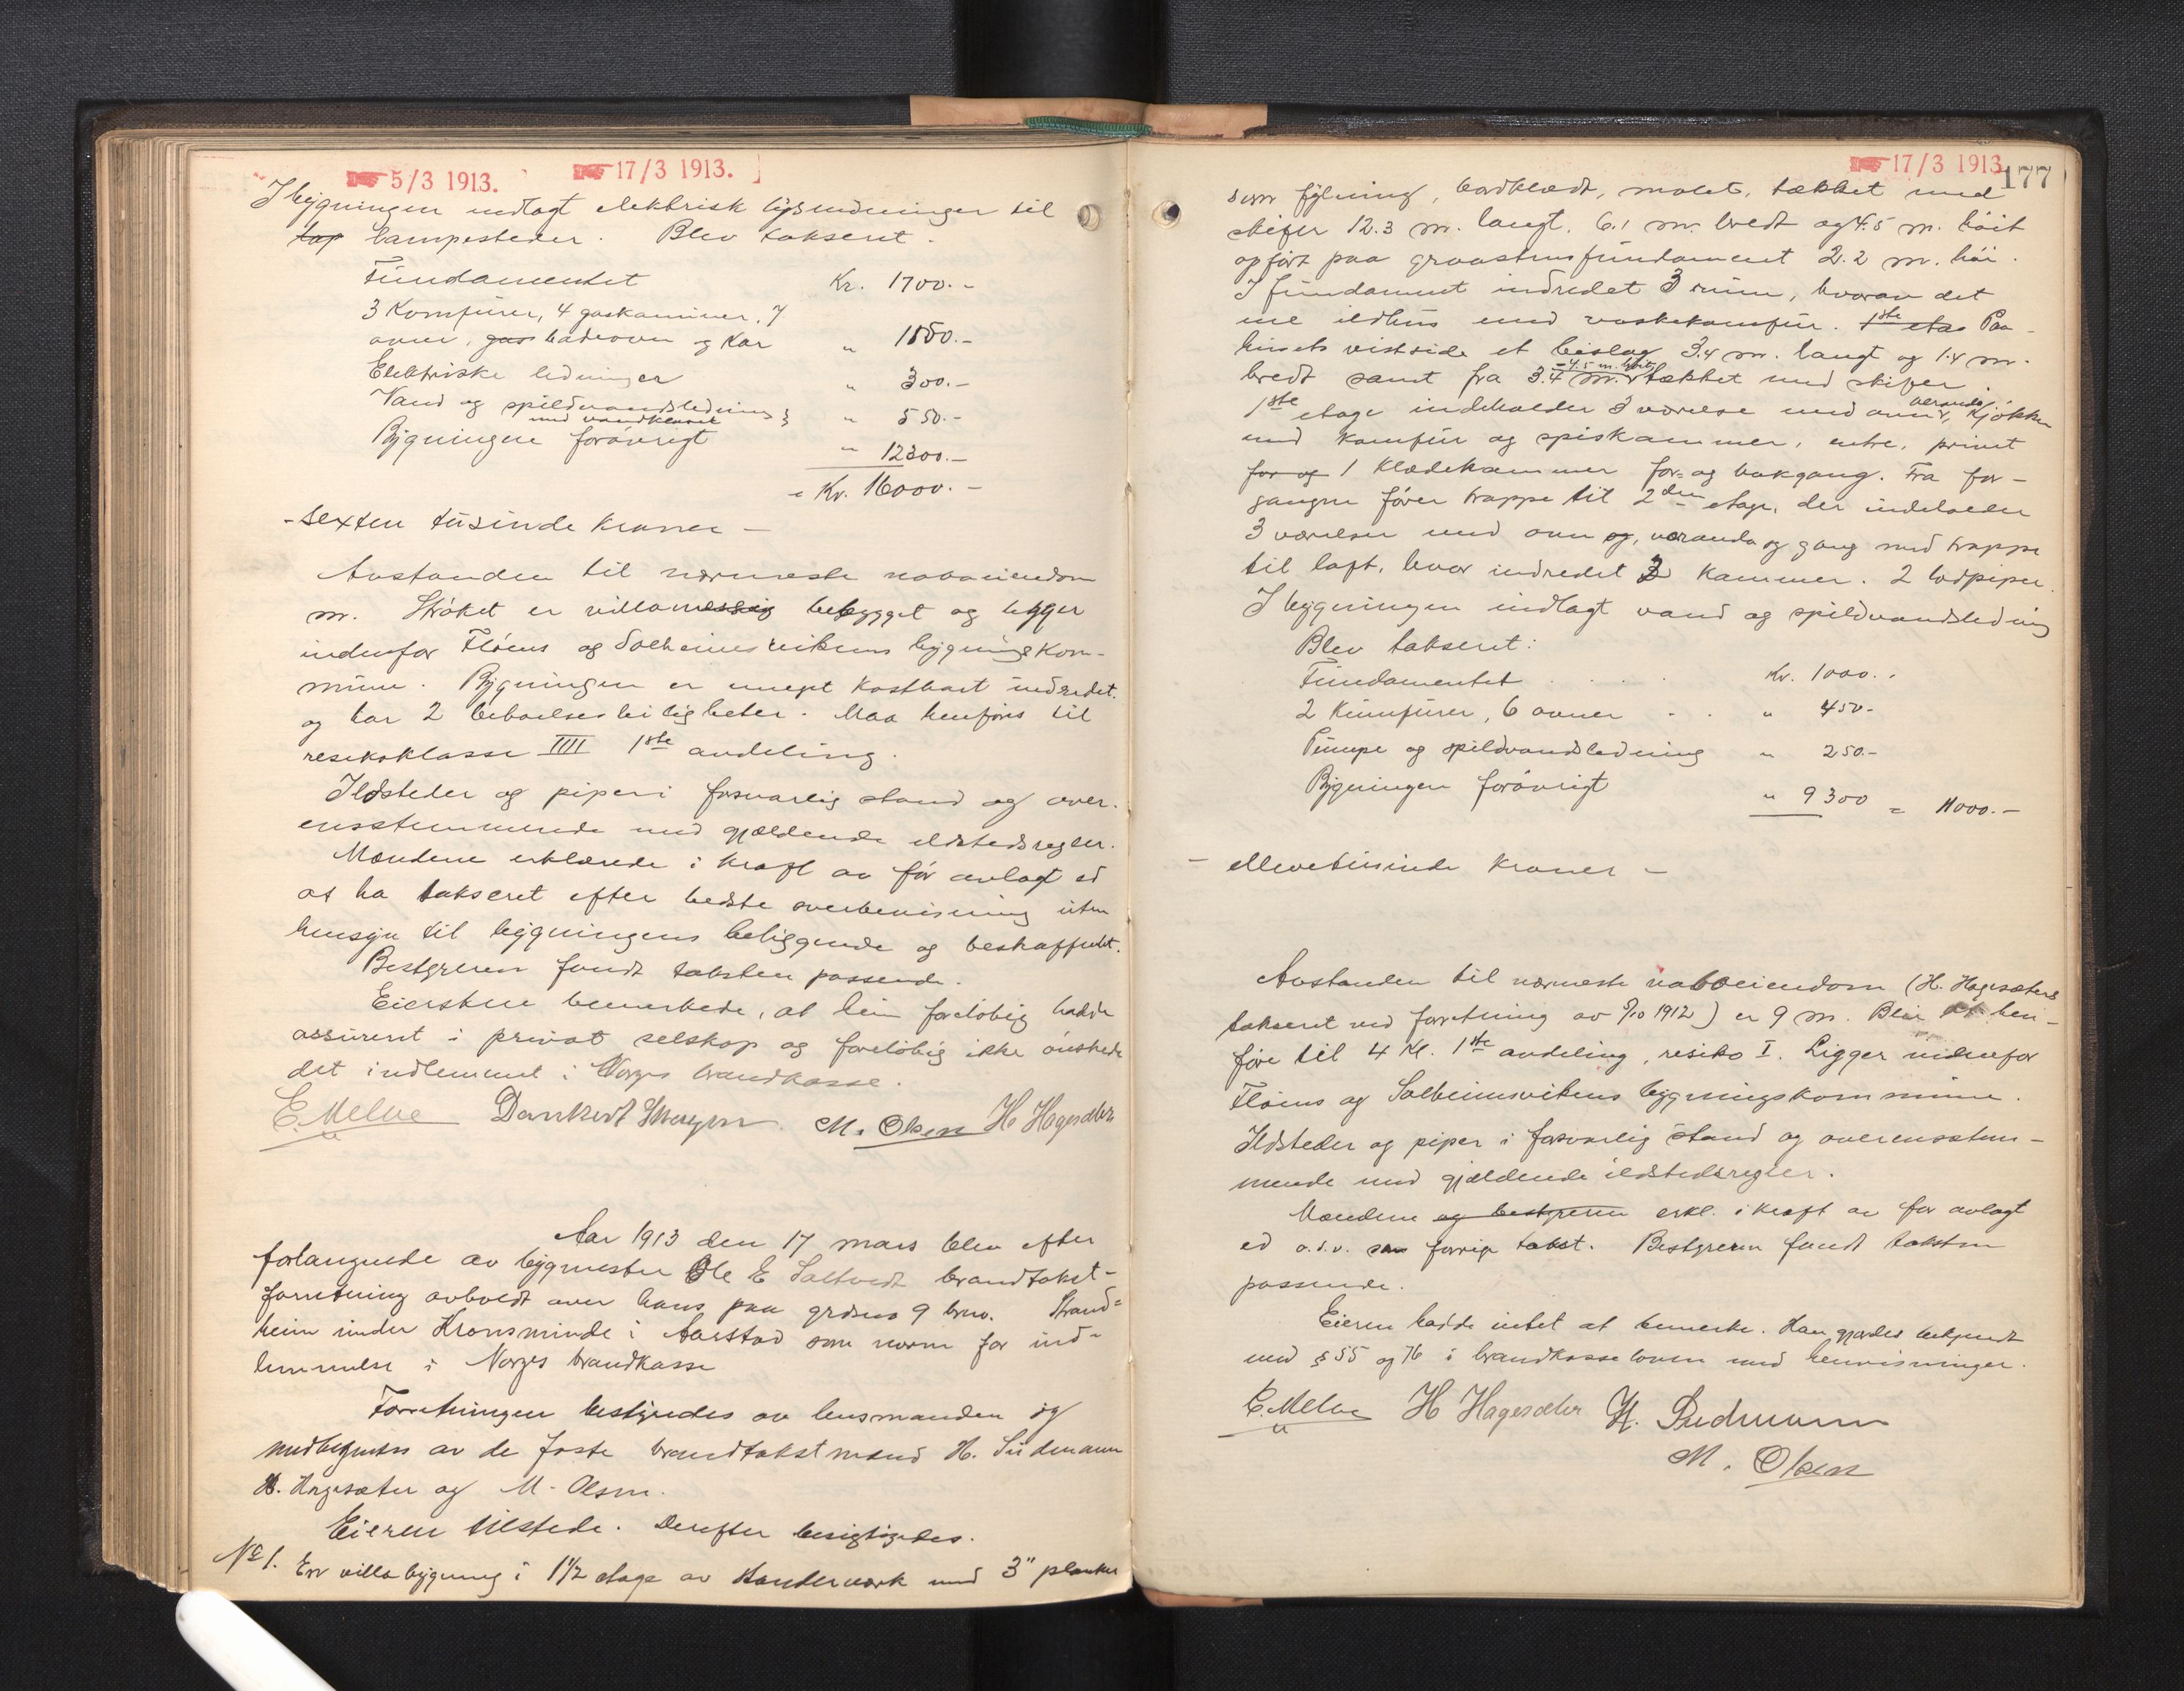 5/3 1913. 17/3 1913.
I bygningen indlagt elektrisk lysledninger til
lap lampesteder. Blev takseret.
Fundamentet Kr. 1700.-
3 Komfurer, 4 gaskaminer, 7
ovner, gas badeovn og Kar " 1150.-
Elektriske ledninger " 300.-
Vand og spildvandsledning
med vandkloset " 550.-
Bygningen forøvrigt " 12300.-
= Kr. 16000.-
- sexten tusinde kroner -
Avstanden til nærmeste naboeiendom
m. Strøket er villamessig bebygget og ligger
indenfor Fløens og Solheimsvikens bygningskom-
mune. Bygningen er meget kostbart indredet
og har 2 beboelsesleiligheter. Maa henføres til
resikoklasse IIII 1ste avdeling.
Ildsteder og piper i forsvarlig stand og over-
ensstemmende med gjældende ildstedsregler.
Mændene erklærede i kraft av før avlagt ed
at ha takseret efter bedste overbevisning uten
hensyn til bygningens beliggende og beskaffenhet.
Bestyreren fandt taksten passende.
Eiersken bemerkede, at hun foreløbig hadde
assureret i privat selskap og foreløbig ikke ønskede
det indlemmet i Norges brandkasse.
E. Melve Dankert M. Olsen H Hagesæter
Aar 1913 den 17 mars blev efter
forlangende av bygmester Ole E Saltvedt brandtakst-
forretning avholdt over hans paa grdsno 9 brno. Strand-
heim under Kronsminde i Aarstad som norm for ind-
lemmelse i Norges brandkasse
Forretningen bestyredes av lensmanden og
medbetjentes av de faste brandtakstmænd H. Südmann
H. Hagesæter og M. Olsen.
Eieren tilstede. Derefter besigtigedes.
No 1. En villabygning i 1 1/2 etage av standerværk med 3" planker
17/3 1913
177
som fylning, bordklædt, malet, tækket med
skifer 12.3 m. langt. 6.1 m. bredt og 4.5 m. høit
opført paa graastensfundament 2.2 m. høi.
I fundament indredet 3 rum, hvorav det
ene ildhus med vaskekomfur. 1ste etas Paa
husets vestside et bislag 3.4 m. langt og 1.4 m.
bredt samt fra 3.4 m. - 4.5 m. høit, tækket med skifer.
1ste etage indeholder 3 værelse med ovner, veranda, Kjøkken
med Komfur og spiskammer, entre, privet
for og 1 Klædekammer for- og bakgang. Fra for-
gangen fører trappe til 2den etage, der indeholder
3 værelser med ovn og, veranda og gang med trappe
til loft, hvor indredet 3 kammer. 2 lodpiper.
I bygningen indlagt vand og spildvandsledning
Blev takseret:
Fundamentet . . . Kr. 1000..
2 Kumfurer, 6 ovner - . " 450-
Pumpe og spildvandsledning " 250.-
Bygningen forøvrigt " 9300 = 11000.-
- ellevetusinde kroner -
Avstanden til nærmeste naboeiendom (H. Hagesæters
takseret ved forretning av 5/10 1912) er 9 m. Blir at hen-
føre til 4 Kl. 1ste avdeling, resiko I. Ligger indenfor
Fløens og Solheimsvikens bygningskommune.
Ildsteder og piper i forsvarlig stand og overensstem-
mende med gjældende ildstedsregler.
Mændene og bestyreren erkl. i kraft av før avlagt
ed o.s.v. som forrige takst. Bestyreren fandt taksten
passende.
Eieren hadde intet at bemerke. Han gjordes bekjendt
med § 55 og 76 i brandkasseloven med henvisninger.
E. Melve H Hagesæter H. Südmann
M. Olsen